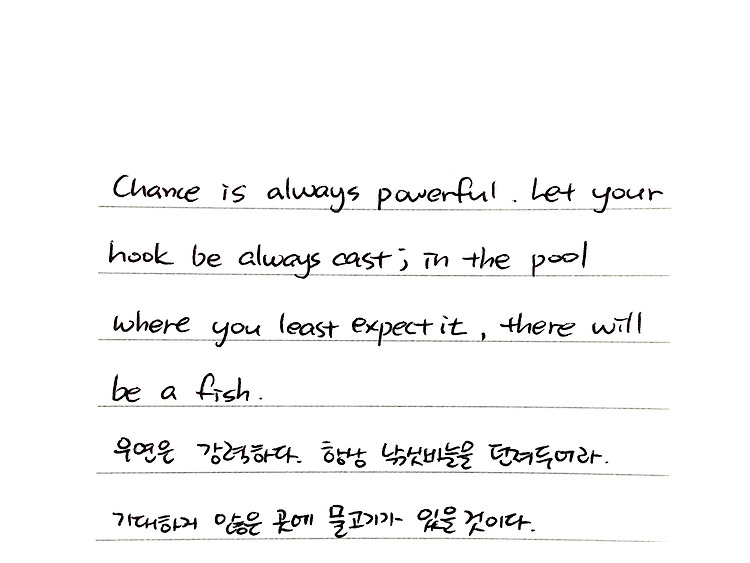 Chance is always powerful. Let your
hook be always cast; in the pool
where you least expect it, there will
be a fish.
우연은 강력하다. 항상 낚싯바늘을 던져두어라.
기대하지 않은 곳에 물고기가 있을 것이다.